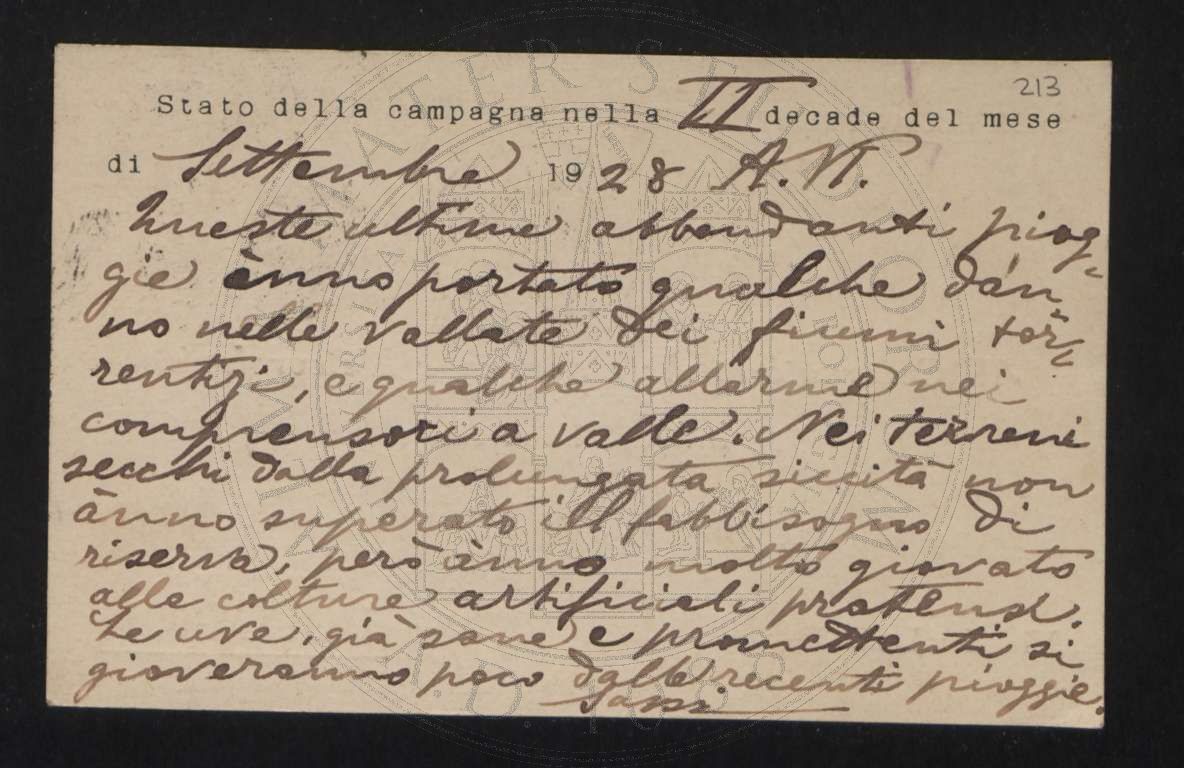 213
Stato della campagna nella II decade del mese
di Settembre 1928 A. VI.
Queste ultime abbondanti piog-
gie ànno portato qualche dan-
no nelle vallate dei fiumi tor-
rentizi, e qualche allarme nei
comprensori a valle. Nei terreni
secchi dalla prolungata siccità non
ànno superato il fabbisogno di
riserva, però ànno molto giovato
alle colture artificiali pratensi.
Le uve, già sane e promettenti si
gioveranno poco dalle recenti pioggie.